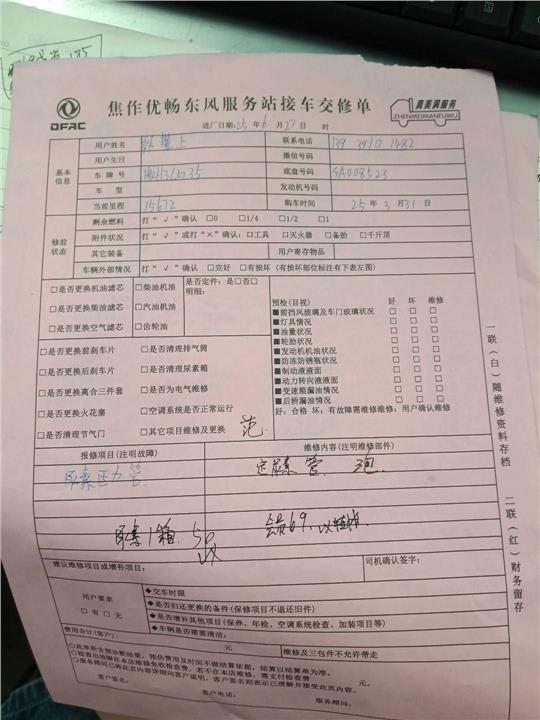 DFAC
焦作优畅东风服务站接车交修单
真美满服务
ZHENMEIMANFUWU
进厂日期: 25 年 6 月 27 日 时
基本信息
用户姓名
联系电话 139 3910 1482
用户生日
微信号码
车牌号
底盘号码 SA008523
车型
发动机号码
当前里程 15672
购车时间 25 年 3 月 31 日
修前状态
剩余燃料 打“√”确认 □0 □1/4 □1/2 □1
附件状况 打“√”或打“×”确认:□工具 □灭火器 □备胎 □千斤顶
其它装备 用户寄存物品
车辆外部情况 打“√”确认 □完好 □有损坏 (有损坏部位标注有下表左图)
□是否更换机油滤芯 □柴油机油 是否定件: 是□否□
明细:
□是否更换柴油滤芯 □汽油机油
□是否更换空气滤芯 □齿轮油
□是否更换前刹车片 □是否清理排气筒
□是否更换后刹车片 □是否清理尿素箱
□是否更换离合三件套 □是否为电气维修
□是否更换火花塞 □空调系统是否正常运行
□是否清理节气门 □其它项目维修及更换 范
预检(目视) 好 坏 维修
■前挡风玻璃及车门玻璃状况 □ □ □
■灯具情况 □ □ □
■油量状况 □ □ □
■轮胎状况 □ □ □
■发动机机油状况 □ □ □
■防冻防锈瓶状况 □ □ □
■制动液液面 □ □ □
■动力转向液液面 □ □ □
■变速箱漏油情况 □ □ □
■后桥漏油情况 □ □ □
好:合格 坏:有故障需维修维修:用户确认维修
报修项目(注明故障)
维修内容(注明维修部件)
尿素压力管
尿素1箱 50
建议维修项目或增补项目:
司机确认签字:
用户要求
□有 □无
◆交车时限
◆是否归还更换的备件(保修项目不退还旧件)
◆是否增补其他项目(保养、年检、空调系统检查、加装项目等)
◆车辆是否需要清洁:
费用合计(客户): 元 维修及三包件不允许带走
○此单所含预诊断结果, 预估费用及时间不做结算依据, 结算以结算单为准。
○检查出故障在本店维修免收检查费, 若不在本店维修, 需支付检查费 元。
○服务顾问已将此页内容详细向客户说明, 客户签名则表示已理解并接受此页内容。
客户签名: 客户电话: 服务顾问:
一联(白)随维修资料存档
二联(红)财务留存